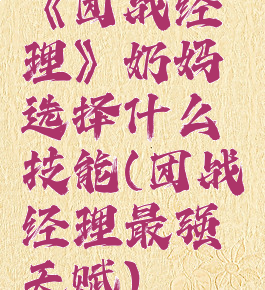 《团战经
理》奶妈
选择什么
技能(团战
经理最强
天赋)